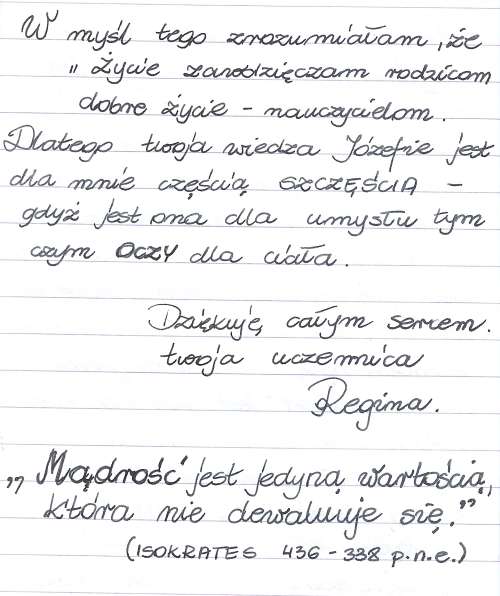 W myśl tego zrozumiałam, że
„ życie zawdzięczam rodzicom
dobre życie – nauczycielom.
Dlatego twoja wiedza Józefie jest
dla mnie częścią SZCZĘŚCIA –
gdyż jest ona dla umysłu tym
czym OCZY dla ciała.
Dziękuję, całym sercem.
twoja uczennica
Regina.
„Mądrość jest jedyną wartością,
która nie dewaluuje się.”
(ISOKRATES 436 - 338 p.n.e.)